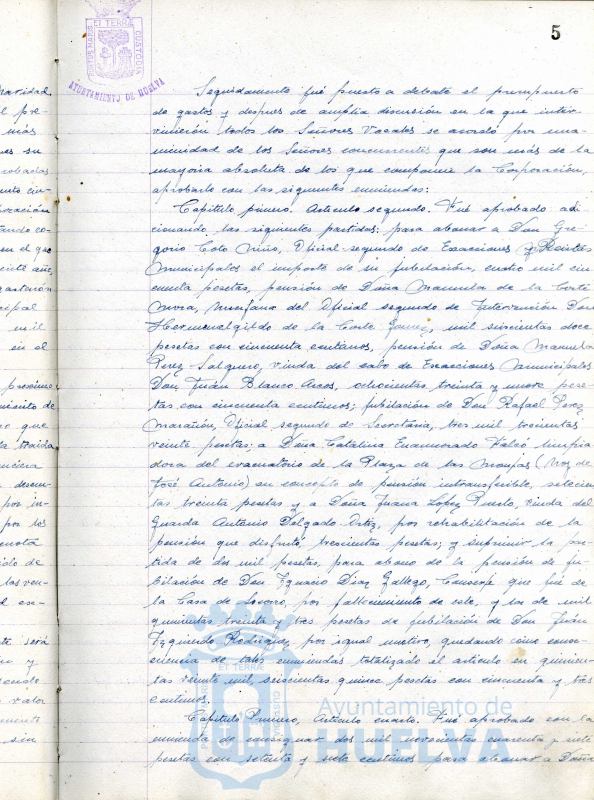 5
PORTUS MARIS ET TERRAE CUSTODIA
AYUNTAMIENTO DE HUELVA
Seguidamente fué puesto a debate el presupuesto
de gastos y despues de amplia discusión en la que inter-
vinieron todos los Señores Vocales se acordó por una-
nimidad de los Señores concurrentes que son más de la
mayoria absoluta de los que componen la Corporación,
aprobarlo con las siguientes enmiendas:
Capitulo primero. Articulo segundo. Fué aprobado adi
cionando las siguientes partidas; para abonar a Don Gre-
gorio Coto Niño, Oficial segundo de Exacciones y Rentas
Municipales el importe de su jubilación, cuatro mil cin
cuenta pesetas, pensión de Doña Manuela de la Corte
huerfana del Oficial segundo de Intervención Don
Hermenegildo de la Corte Gomez, mil seiscientas doce
pesetas con cincuenta centimos, pensión de Doña Manuela
Perez Salguero, viuda del cabo de Exacciones Municipales
Don Juan Blanco Arcos, ochocientas treinta y nueve pese-
tas con cincuenta centimos; jubilación de Don Rafael Perez
Marañón, Oficial segundo de Secretaria, tres mil trescientas
veinte pesetas; a Doña Catalina Enamorado limpia
dora del evacuatorio de la Plaza de las Monjas (hoy de
José Antonio) en concepto de pensión intransferible, setecien
tas treinta pesetas y a Doña Juana Lopez Puerto, viuda del
Guarda Antonio Delgado Ortiz, por rehabilitación de la
pensión que disfrutó, trescientas pesetas; y suprimir la par-
tida de dos mil pesetas, para abono de la pensión de ju-
bilación de Don Ygnacio Diaz Gallego, Conserje que fué de
la Casa de Socorro, por fallecimiento de este, y las de mil
quinientas treinta y tres pesetas de jubilación de Don Juan
Yzquierdo Rodriguez, por igual motivo, quedando como conse-
cuencia de tales enmiendas totalizado el articulo en quinien-
tas veinte mil, seiscientas quince pesetas con cincuenta y tres
centimos.
Capitulo Primero, Articulo cuarto. Fué aprobado con la
enmienda de consignar dos mil novecientas cuarenta y siete
pesetas con setenta y siete centimos para abonar a Doña
Ayuntamiento de
HUELVA